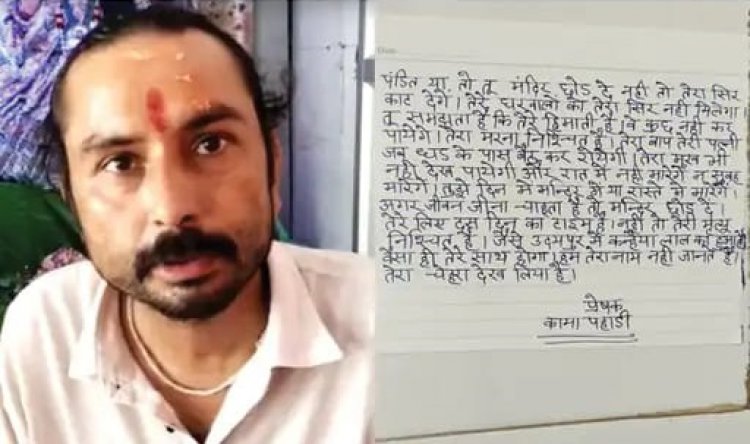 पंडित या तो तू मंदिर छोड दे नही तो तेरा सिर
काट देंगे। तेरे घरवालो को तेरा सिर नही मिलेगा।
तू समझता है कि तेरे हिमाती है। वे कुछ नही कर
पायेंगे। तेरा मरना निश्चित है। तेरा बाप तेरी पत्नी
जब धड के पास बैठ कर रोयेगी। तेरा मुख भी
नही देख पायेगी और रात में नही मारेंगे न सुबह
मारेंगे। तुझे दिन मे मन्दिर में या रास्ते मे मारेंगे।
अगर जीवन जीना चाहता है तो मन्दिर छोड दे।
तेरे लिए दस दिन का टाइम है। नही तो तेरी मृत्यु
निश्चित है। जैसे उदयपुर मे कन्हैया लाल का हुआ है
वैसा ही तेरे साथ होगा। हम तेरा नाम नही जानते है।
तेरा चेहरा देख लिया है।
प्रेषक
कामा पहाडी